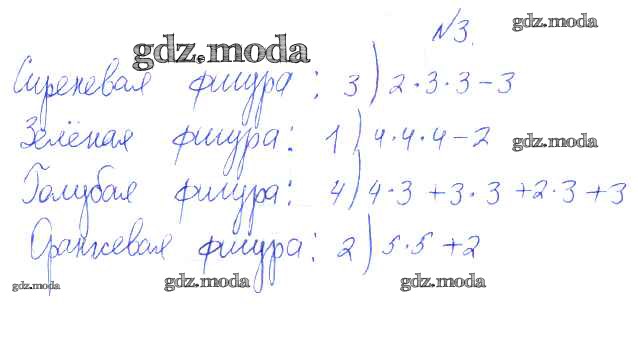 №3.
gdz.moda
gdz.moda
Сиреневая фигура: 3) 2·3·3-3
Зелёная фигура: 1) 4·4·4-2
gdz.moda
Голубая фигура: 4) 4·3+3·3+2·3+3
Оранжевая фигура: 2) 5·5+2
gdz.moda
gdz.moda
gdz.moda